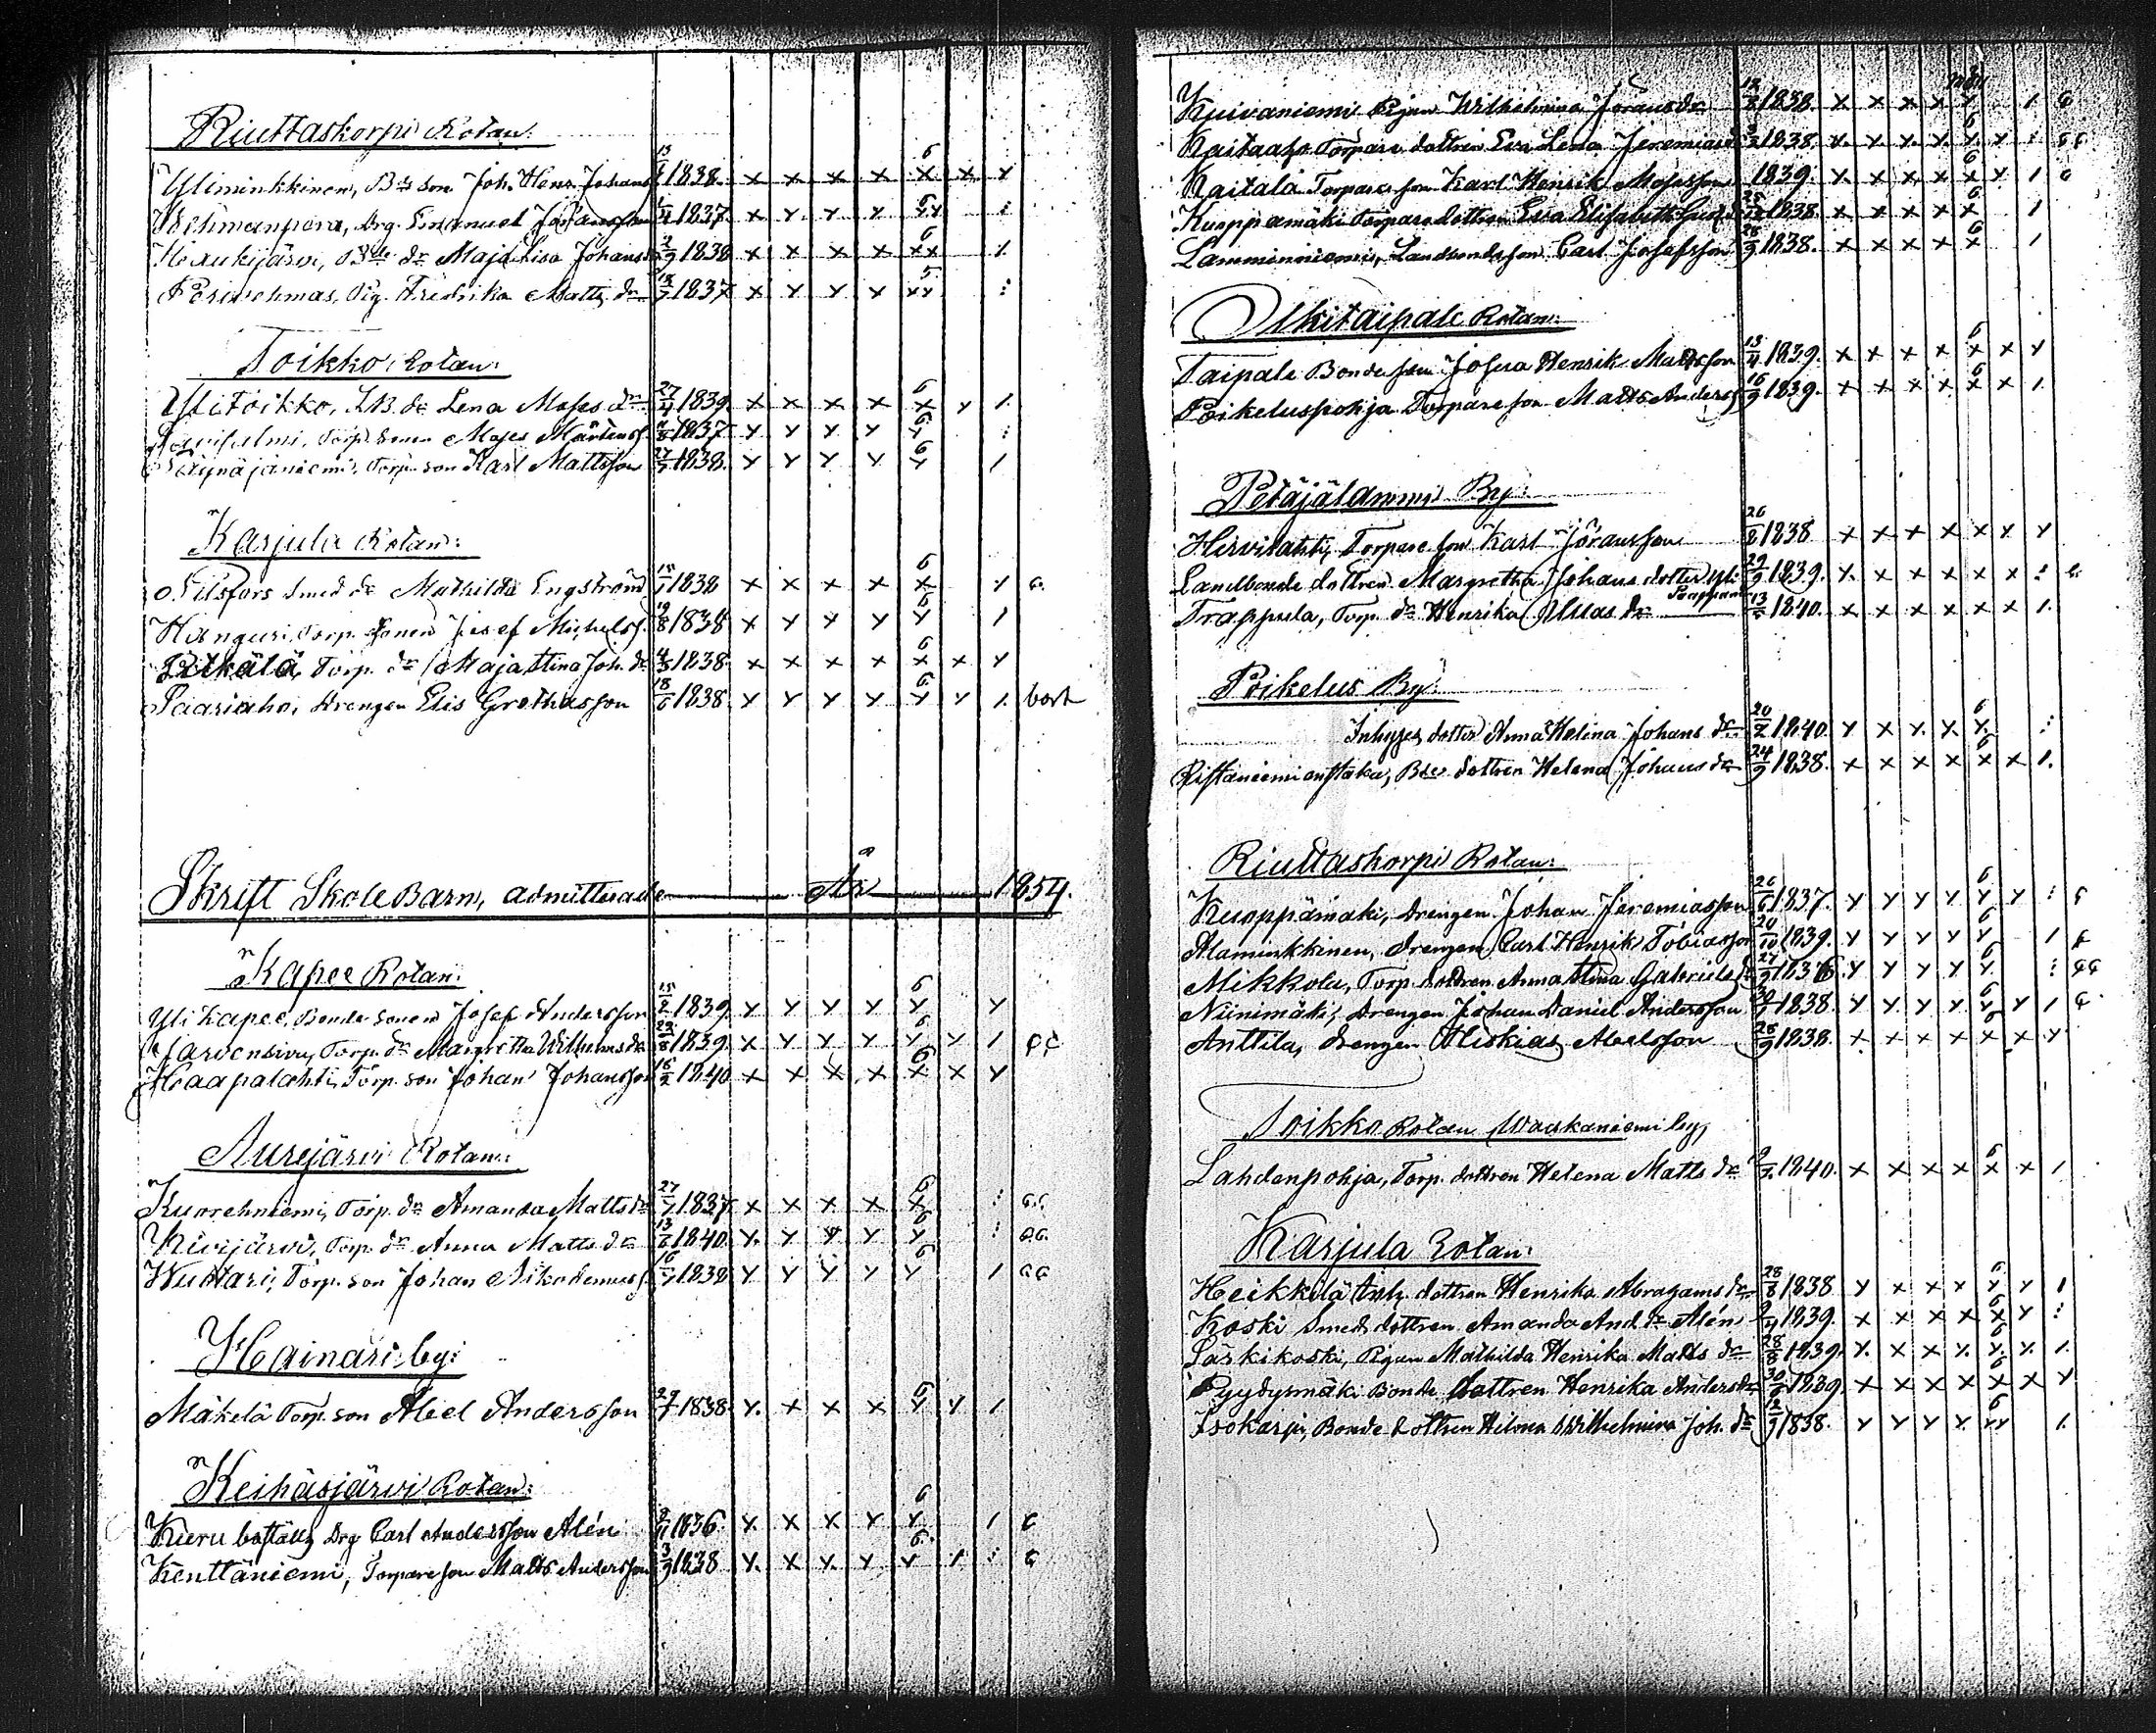 Riuttaskorpi Rotan:
Yliminkkinen, Bds son Joh. Henr. Johans 13/ 1838. x x x x x x x
Drg. Emanuel Johansson 1837 x x x x xx
Haukijärvi, Bde dr Maja Lisa Johans dr 2/9 1838 x x x x xx
Perivehmas, Pig. Fredrika Matts dr 1837 x x x x xx
Toikko Rotan:
Ylitoikko, LB. dr Lena Moses dr 27/4 1839 x x x x x x 1.
Torp. sonen Moses Mårtenss. 1837 x x x x x
Torp. son Karl Mattsson 1838. x x x x x 1
Karjula Rotan:
Nilsfors Smed dr Mathilda Engström 1838 x x x x x
Hanguri, Torp. sonen Josef Michelss. 19/8 1838 x x x x x 1
Torp. dr Maja Stina Joh. dr 4/3 1838. x x x x x x x
Saariaho, Drengen Elis Grethasson 18/6 1838. x x x x x x 1. bort
Skrift Skole Barn, admitterade År 1854.
Kapee Rotan:
Yli Kapee, Bonde sonen Josef Andersson 1839. x x x x x x
Jarvensivu, Torp. dr Margretha Wilhelms dr 29/8 1839. x x x x x x 1
Haapalahti, Torp. son Johan Johansson 16/2 1840 x x x x x x x
Aurejärvi Rotan:
Kuorehniemi, Torp. dr Amanda Matts dr 27/ 1837 x x x x x
Kivijärvi, Torp. dr Anna Matts dr 13/2 1840. x x x x x
Wuttari, Torp. son Johan Nikodemuss. 1838 x x x x x 1
Hainari by:
Mäkelä Torp. son Abel Andersson 29/7 1838. x x x x x x 1
Keihäsjärvi Rotan:
Kieru boställe Drg Carl Andersson Alén 2/11 1836. x x x x x 1
Kenttäniemi, Torpare son Matts Andersson 3/9 1838 x x x x x x
Kuivaniemi Pigan Wilhelmina Jöransdr 1838. x x x x x 1
Kaitaaho Torpare dottren Eva Lena Jeremias dr 1838. x x x x x x
Kaitala Torpare son Karl Henrik Mosesson 1839. x x x x x x 1
Kuoppamäki Torpare dottren Eva Elisabeth 1838. x x x x x 1
Lamminniemi, Landbondesson Carl Josefsson 28/9 1838. x x x x x 1
Olkitaipale Rotan:
Taipale Bonde son Josua Henrik Mattsson 13/4 1839. x x x x x x x
Poikeluspohja Torpare son Matts Anderss 16/9 1839. x x x x x x 1.
Petäjälammi By:
Hirvilahti, Torpare son Karl Jöransson 26/8 1838 x x x x x x x
Landbonde dottren Margretha Johans dotter Yli Pappila 29/9 1839. x x x x x x
Trappula, Torp. dr Henrika Esaias dr 13/ 1840. x x x x x x 1.
Poikelus By:
Inhyses dotter Anna Helena Johans dr 20/2 1840. x x x x x
Ristaniemi Bde dottren Helena Johans dr 24/9 1838. x x x x x x 1.
Riuttaskorpi Rotan:
Kuoppämäki, drengen Johan Jeremiasson 26/6 1837. x x x x x x
Alaminkkinen, drengen Carl Henrik Tobiasson 20/10 1839. x x x x x 1
Mikkola, Torp. dottren Anna Stina Gabriels dr 27/9 1836. x x x x x
Niinimäki, Drengen Johan Daniel Andersson 1838. x x x x x x 1
Anttila, drengen Hiskias Abelsson 26/9 1838. x x x x x x x
Toikko Rotan Waakaniemi by,
Lahdenpohja, Torp. dottren Helena Matts dr 1840. x x x x x x 1
Karjula Rotan:
Heikkilä Inh. dottren Henrika Abragams dr 28/8 1838 x x x x x x 1
Koski Smed dottren Amanda And. dr Alén 9/4 1839. x x x x x x
Särkikoski, Pigan Mathilda Henrika Matts dr 28/8 1839. x x x x x x 1.
Pyydysmäki Bonde dottren Henrika Anders dr 1839. x x x x x x x
Isokarju, Bonde dottren Helena Wilhelmina Joh. dr 1838. x x x x xx 1.